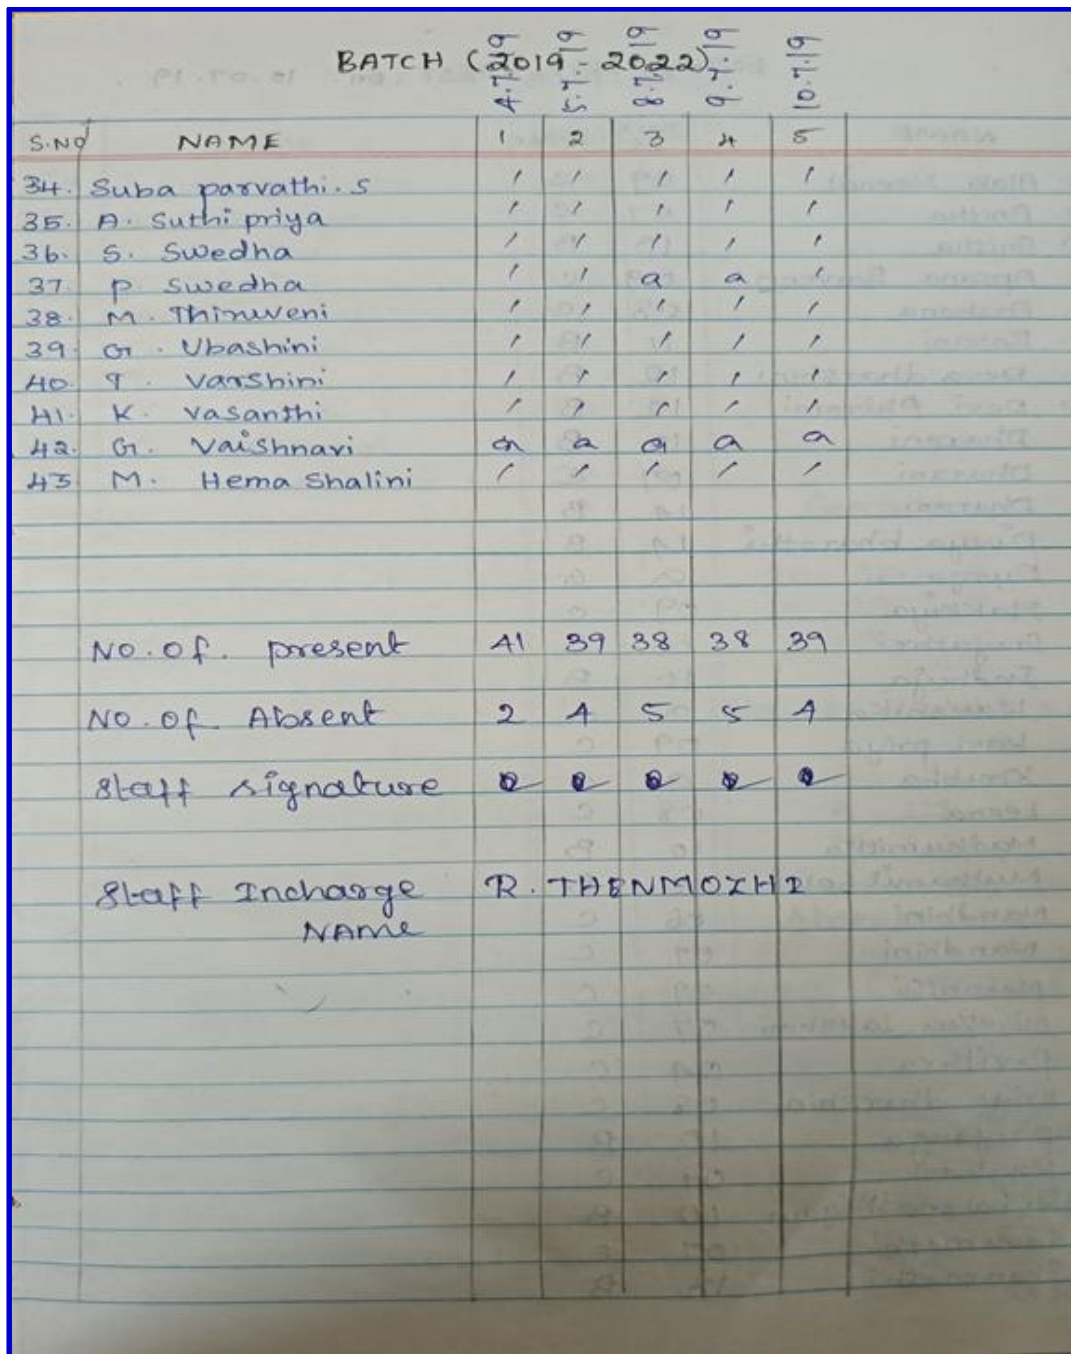 BATCH (2019 - 2022)
4.7.19 5.7.19 8.7.19 9.7.19 10.7.19
S.NO NAME 1 2 3 4 5
34. Suba parvathi. S / / / / /
35. A. Suthi priya / / / / /
36. S. Swedha / / / / /
37. P. Swedha / / a a /
38. M. Thiruveni / / / / /
39. G. Ubashini / / / / /
40. T. Varshini / / / / /
41. K. Vasanthi / / / / /
42. G. Vaishnavi a a a a a
43 M. Hema Shalini / / / / /
No. of. present 41 39 38 38 39
No. of Absent 2 4 5 5 4
Staff signature
Staff Incharge R. THENMOZHI
NAME